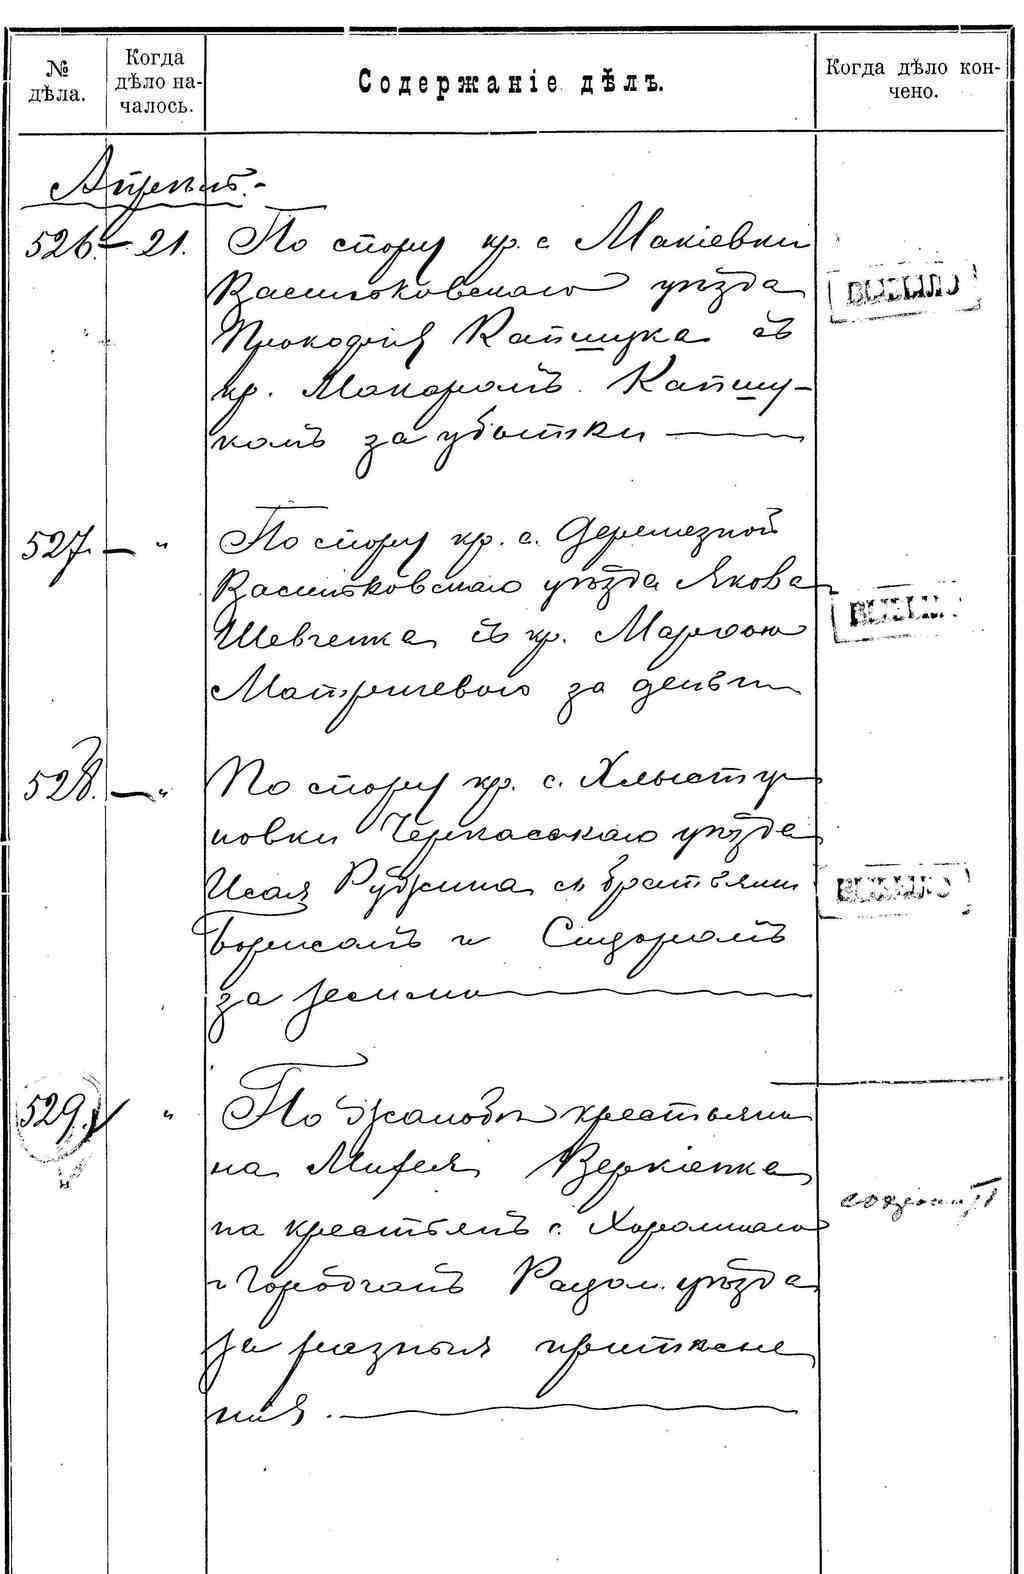 № дѣла.
Когда дѣло на-
чалось.
Содержаніе дѣлъ.
Когда дѣло кон-
чено.
Апрѣль.-
526.- 21. По спору кр. с. Макіевки
Васильковскаго уѣзда
Прокофія Капшука съ
кр. Макаромъ Капшу-
комъ за убытки
527. - " По спору кр. с. Деремезной
Васильковскаго уѣзда Якова
Шевченка съ кр. Марфою
за деньги
528. - " По спору кр. с. Хлысту-
новки Черкасскаго уѣзда
Исая Рубжина съ братьями
Борисомъ и Сидоромъ
за землю
529. " По жалобѣ крестьяни
на Михея Веркіенка
на крестьянъ с.
Радом. уѣзда
за разныя притѣсне
нія.